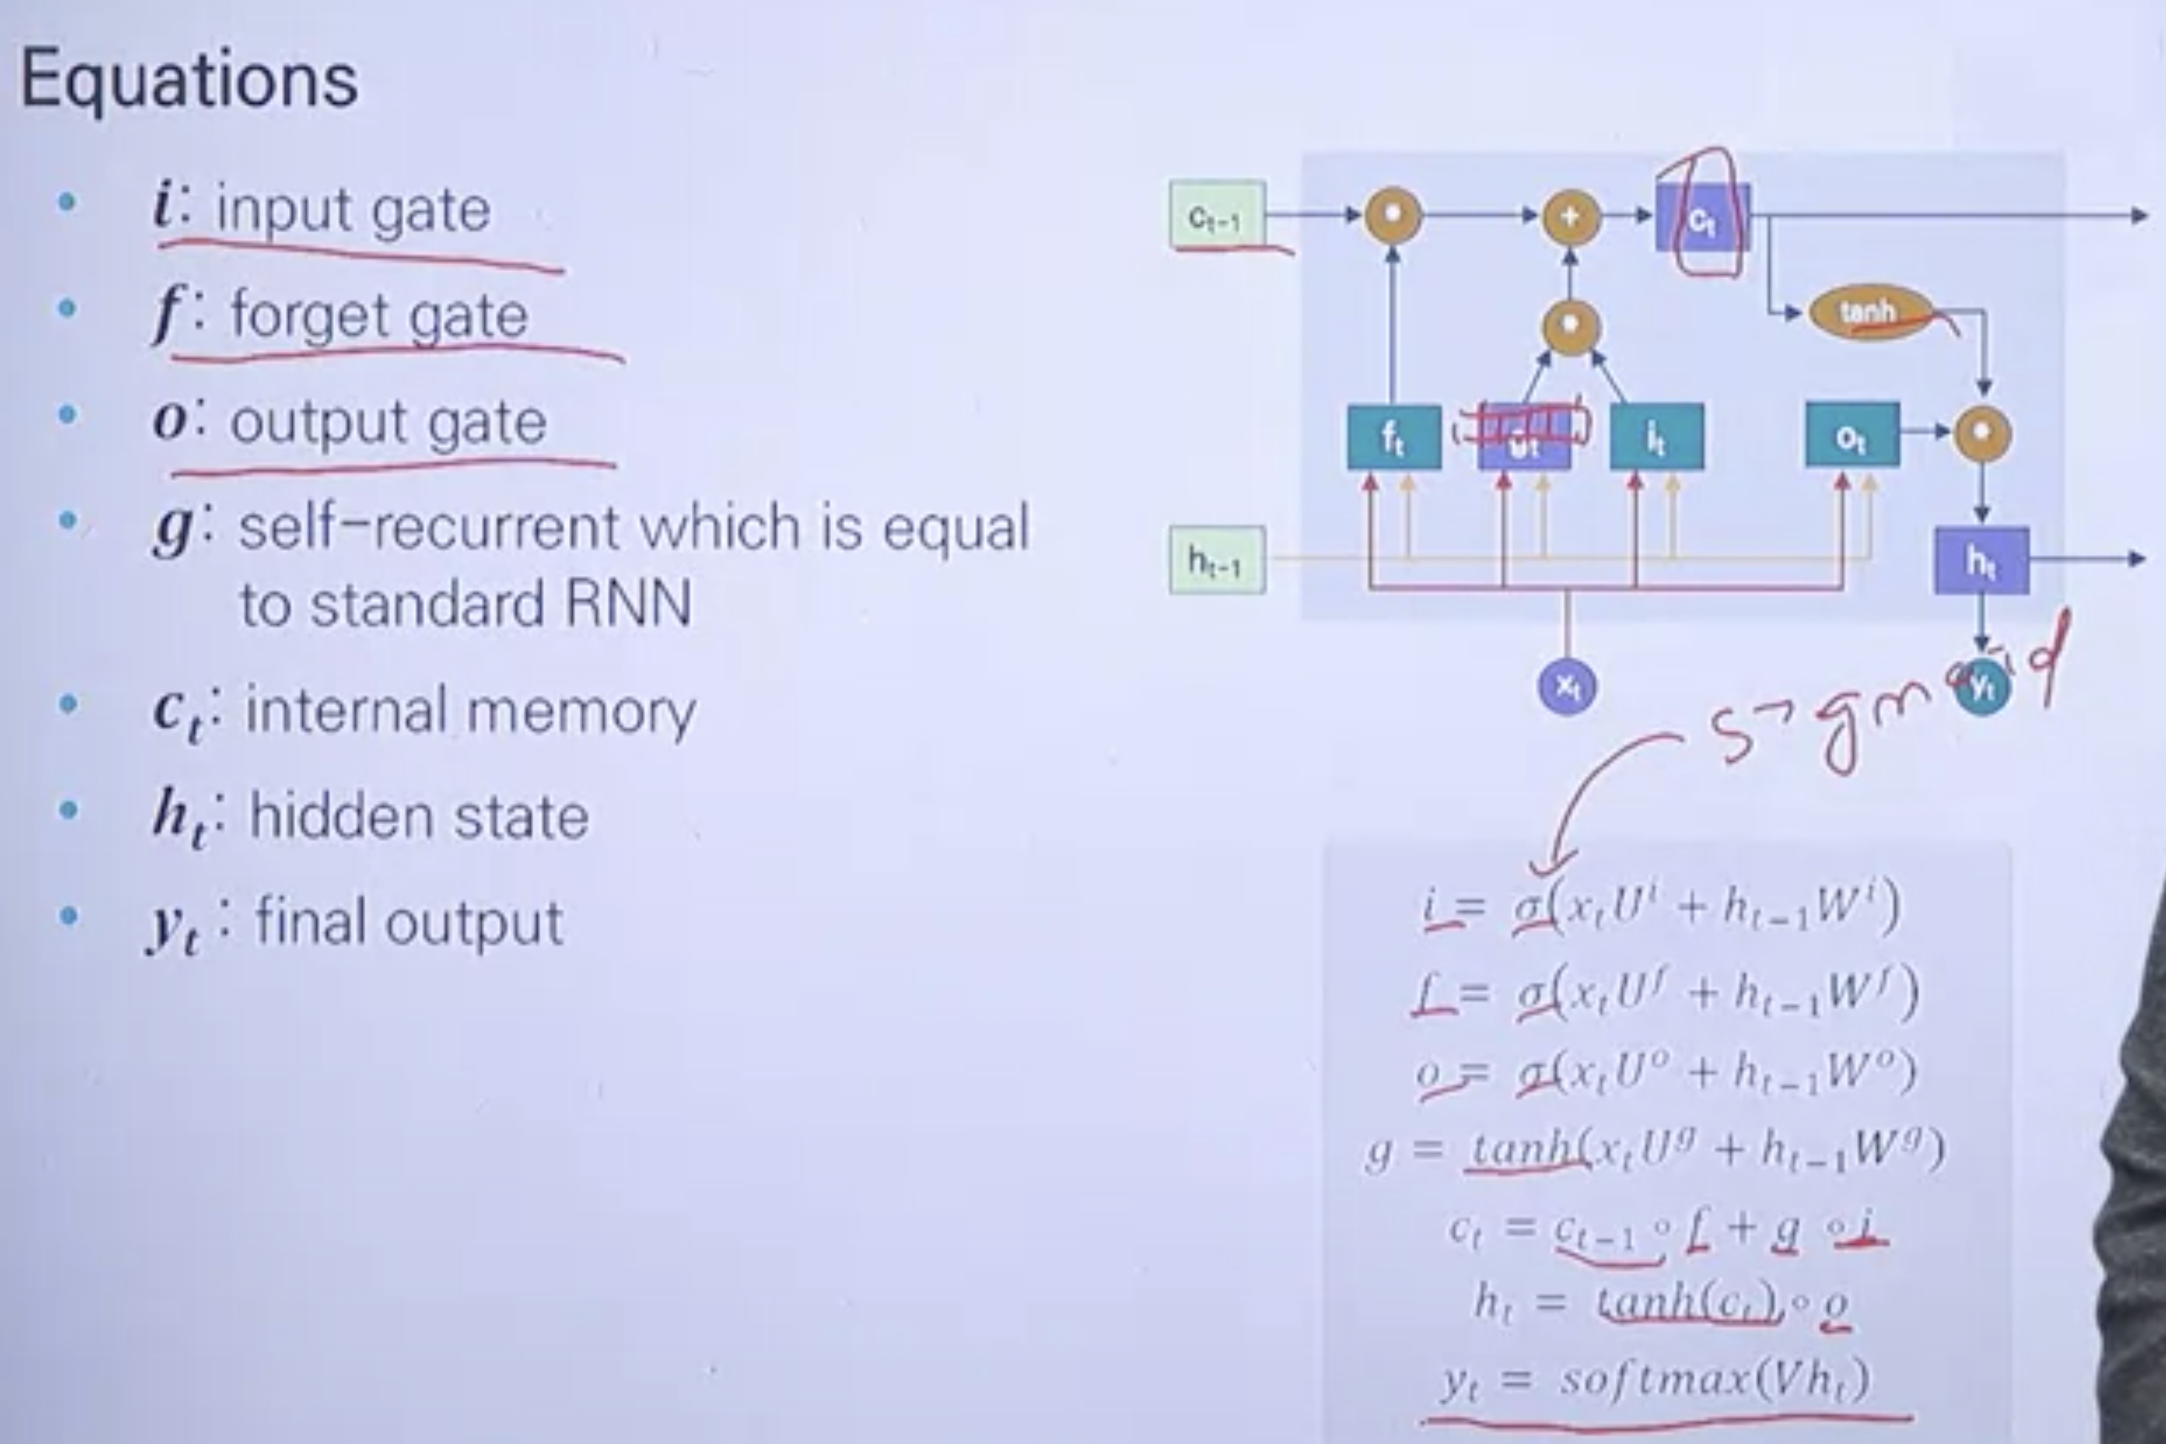 Equations
• i: input gate
• f: forget gate
• o: output gate
• g: self-recurrent which is equal
to standard RNN
• cₜ: internal memory
• hₜ: hidden state
• yₜ: final output
cₜ₋₁ • + cₜ
tanh
•
fₜ iₜ oₜ •
hₜ₋₁ hₜ
xₜ yₜ
sigmoid
i = σ(xₜUⁱ + hₜ₋₁Wⁱ)
f = σ(xₜUᶠ + hₜ₋₁Wᶠ)
o = σ(xₜUᵒ + hₜ₋₁Wᵒ)
g = tanh(xₜUᵍ + hₜ₋₁Wᵍ)
cₜ = cₜ₋₁ ∘ f + g ∘ i
hₜ = tanh(cₜ) ∘ o
yₜ = softmax(Vhₜ)